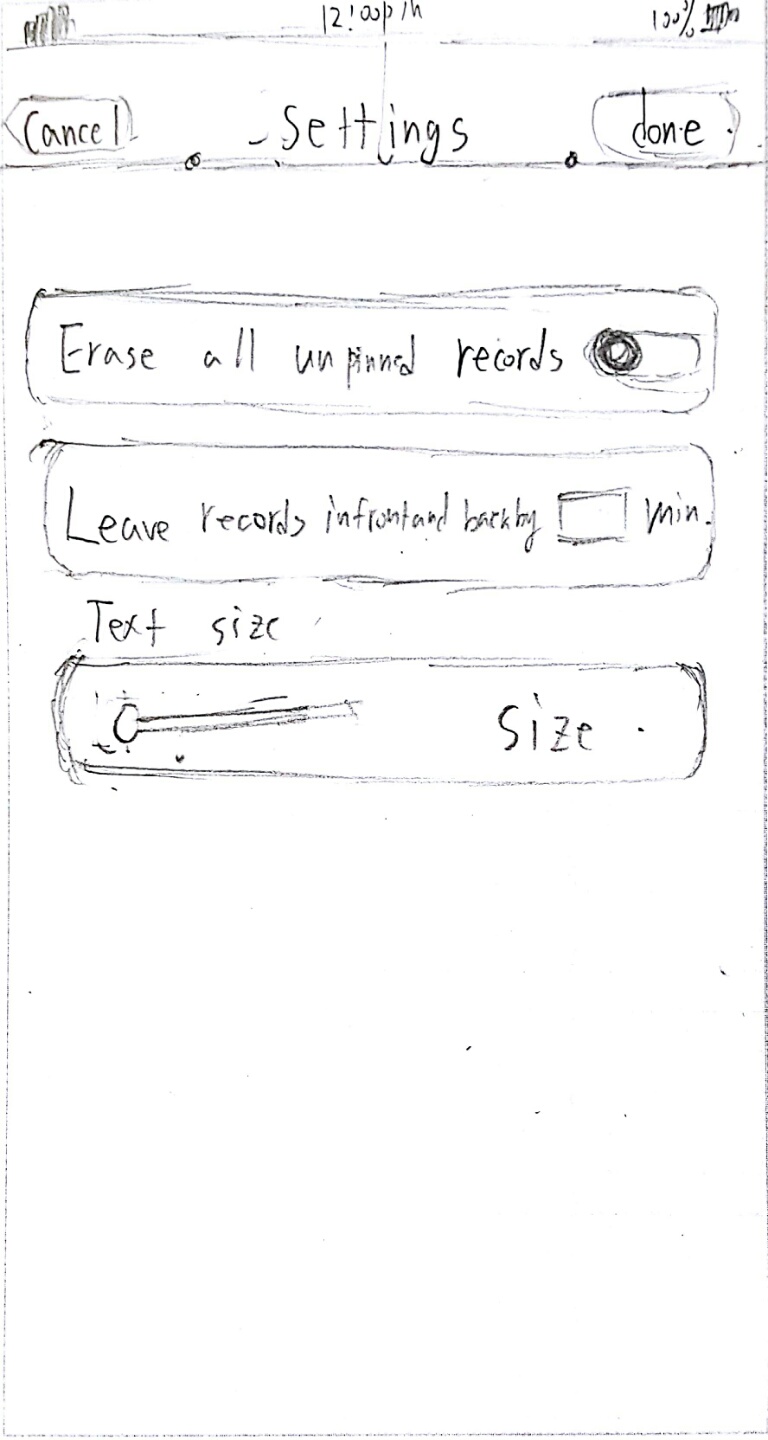 12:00pm 100%
Cancel Settings done
Erase all unpinned records
Leave records infrontand backby min.
Text size
Size